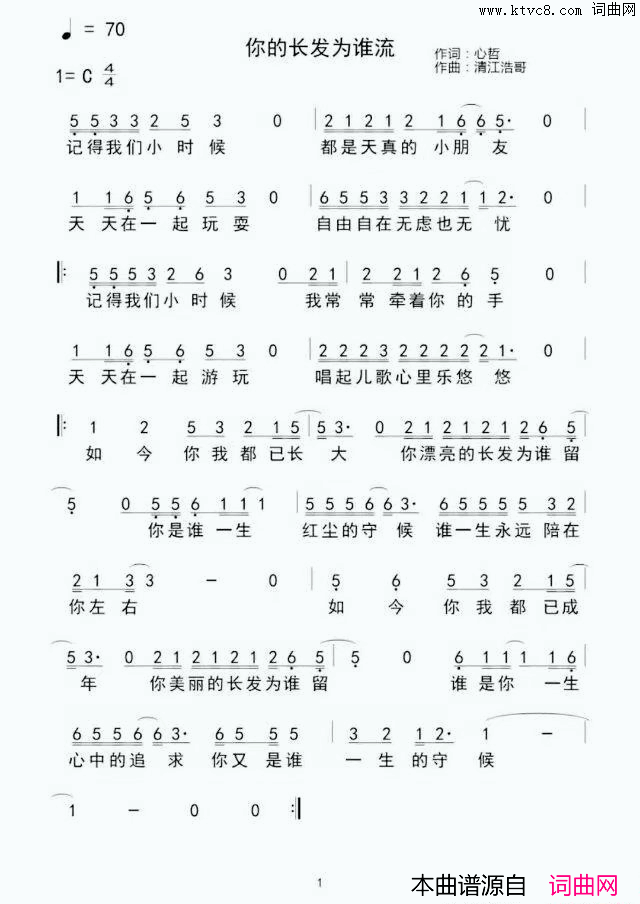 www.ktvc8.com 词曲网
♩= 70
你的长发为谁流
作词：心哲
1= C 4/4
作曲：清江浩哥
5 5 3 3 2 5 3 0 | 2 1 2 1 2 1 6 6 5· 0
记得我们小时候 都是天真的小朋友
1 1 6 5 6 5 3 0 | 6 5 5 3 3 2 2 1 1 2· 0
天天在一起玩耍 自由自在无虑也无忧
‖: 5 5 5 3 2 6 3 0 2 1 | 2 2 2 1 2 6 5 0
记得我们小时候 我常常牵着你的手
1 1 6 5 6 5 3 0 | 2 2 2 2 2 2 2 2 1· 0
天天在一起游玩 唱起儿歌心里乐悠悠
‖: 1 2 5 3 2 1 5 | 5 3· 0 2 1 2 1 2 1 2 6 5
如今你我都已长大 你漂亮的长发为谁留
5 0 5 5 6 1 1 1 | 5 5 5 6 6 3· 6 5 5 5 5 3 2
你是谁一生 红尘的守候 谁一生永远陪在
2 1 3 3 － 0 | 5 6 5 3 2 1 5
你左右 如今你我都已成
5 3· 0 2 1 2 1 2 1 2 6 5 | 5 0 6 1 1 1 1 6
年 你美丽的长发为谁留 谁是你一生
6 5 5 6 6 3· 5 5 5 5· | 3 2 1 2· 1 －
心中的追求你又是谁 一生的守候
1 － 0 0 :‖
1
本曲谱源自 词曲网